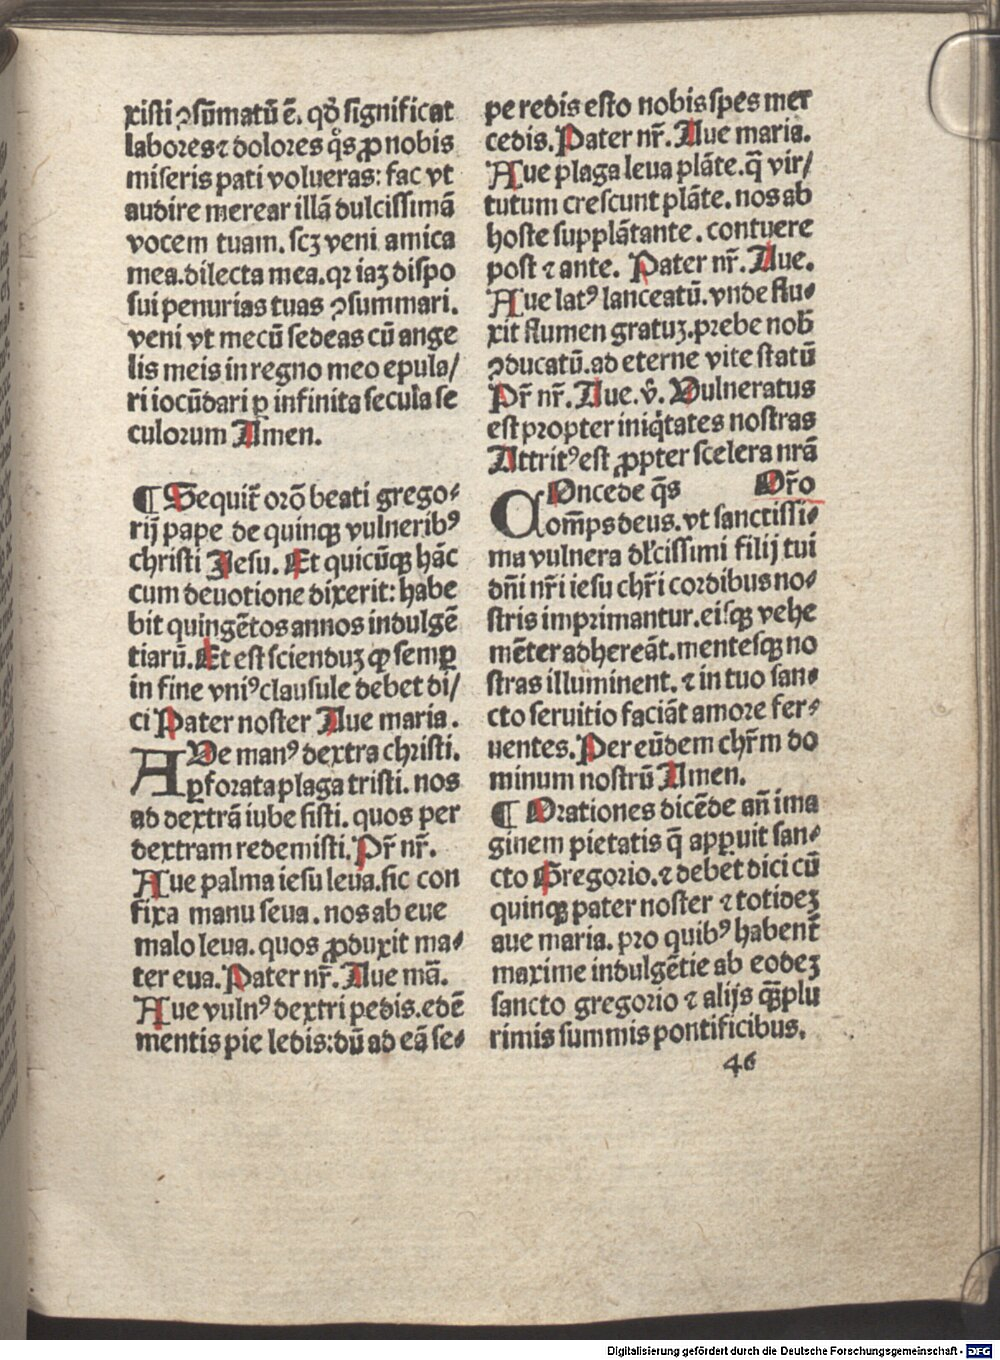 xisti ꝯsūmatū ē. qð significat
labores ⁊ dolores q̊s ꝓ nobis
miseris pati volueras: fac vt
audire merear illā dulcissimā
vocem tuam. scꝫ veni amica
mea. dilecta mea. qꝛ iaꝫ dispo
sui penurias tuas ꝯsummari.
veni vt mecū sedeas cū ange
lis meis in regno meo epula/
ri iocūdari ꝑ infinita secula se
culorum Amen.
¶ Sequit̃ orõ beati grego⸗
rij pape de quinqꝫ vulneribꝰ
christi Jesu. Et quicūqꝫ hāc
cum deuotione dixerit: habe
bit quingētos annos indulgē
tiarū. Et est scienduꝫ ꝙ semꝑ
in fine vniꝰ clausule debet di/
ci Pater noster Aue maria.
AVe manꝰ dextra christi.
ꝑforata plaga tristi. nos
ad dextrā iube sisti. quos per
dextram redemisti. Pr̃ nr̃.
Aue palma iesu leua. sic con
fixa manu seua. nos ab eue
malo leua. quos ꝓduxit ma⸗
ter eua. Pater nr̃. Aue mā.
Aue vulnꝰ dextri pedis. edē
mentis pie ledis: dū ad eā se⸗
pe redis esto nobis spes mer
cedis. Pater nr̃. Aue maria.
Aue plaga leua plāte. q̄ vir/
tutum crescunt plāte. nos ab
hoste supplātante. contuere
post ⁊ ante. Pater nr̃. Aue.
Aue latꝰ lanceatū. vnde flu⸗
xit flumen gratuꝫ. prebe nob̄
ꝯducatū. ad eterne vite statū
Pr̃ nr̃. Aue. v̄. Vulneratus
est propter iniq̇tates nostras
Attritꝰ est ꝓpter scelera nrā
COncede q̄s Or̃o
om̄ps deus. vt sanctissi⸗
ma vulnera dl̄cissimi filij tui
dn̄i nr̃i iesu chr̃i cordibus no⸗
stris imprimantur. eisqꝫ vehe
mēter adhereāt. mentesqꝫ no
stras illuminent. ⁊ in tuo san⸗
cto seruitio faciāt amore fer⸗
uentes. Per eūdem chr̃m do
minum nostrū Amen.
¶ Orationes dicēde an̄ ima
ginem pietatis q̄ apparuit san⸗
cto Gregorio. ⁊ debet dici cū
quinqꝫ pater noster ⁊ totideꝫ
aue maria. pro quibꝰ habent̃
maxime indulgētie ab eodeꝫ
sancto gregorio ⁊ alijs qꝫplu
rimis summis pontificibus.
46
Digitalisierung gefördert durch die Deutsche Forschungsgemeinschaft - DFG